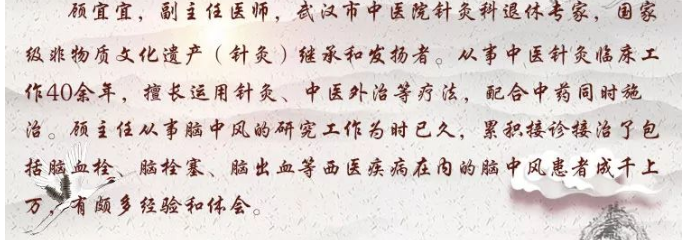 顾宜宜，副主任医师，武汉市中医院针灸科退休专家，国家
级非物质文化遗产（针灸）继承和发扬者。从事中医针灸临床工
作40余年，擅长运用针灸、中医外治等疗法，配合中药同时施
治。顾主任从事脑中风的研究工作为时已久，累积接诊接治了包
括脑血栓、脑栓塞、脑出血等西医疾病在内的脑中风患者成千上
万，有颇多经验和体会。